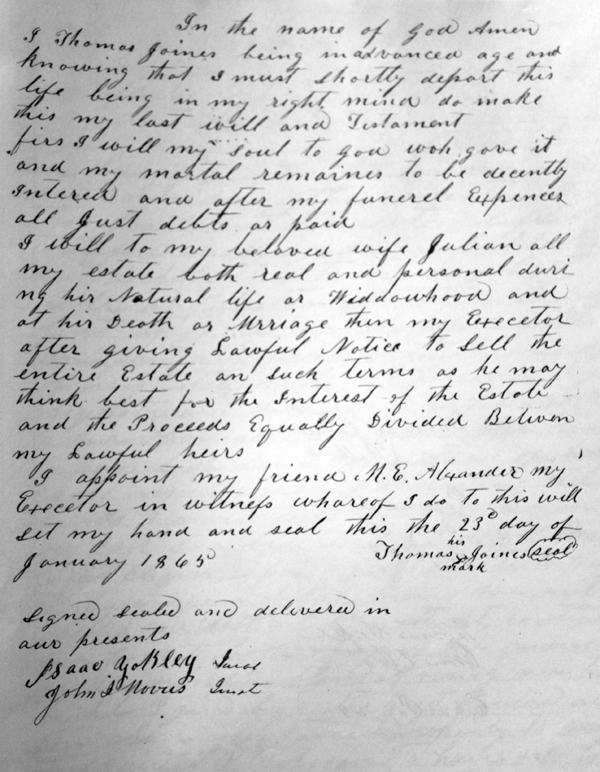 In the name of God Amen
I Thomas Joines being in advanced age and
knowing that I must shortly depart this
life being in my right mind do make
this my last will and Testament
firs I will my Soul to God woh gave it
and my mortal remaines to be decently
Intered and after my funerel Expences
all Just debts ar paid
I will to my beloved wife Julian all
my estate both real and personal duri
ng hir Natural life or Widdowhood and
at hir Death or Mrriage then my Execetor
after giving Lawful Notice to Sell the
entire Estate on Such terms as he may
think best for the Interest of the Estate
and the Proceeds Equally Divided Betwen
my Lawful heirs
I appoint my friend M. E. Alexander my
Execetor in witness whareof I do to this will
Set my hand and seal this the 23d day of
January 1865
Thomas his mark Joines seal
Signed Sealed and delivered in
our presents
Isaac Yokley Jurat
John Norris Jurat